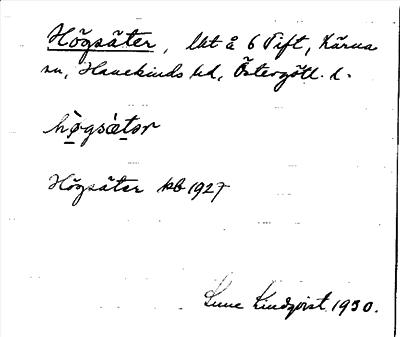 Högsäter, lht å 6 Tift, Kärna
sn, Hanekinds hd, Östergötl. l.
hø̀gsæ̀tər
Högsäter kb 1927
Sune Lindqvist 1930.